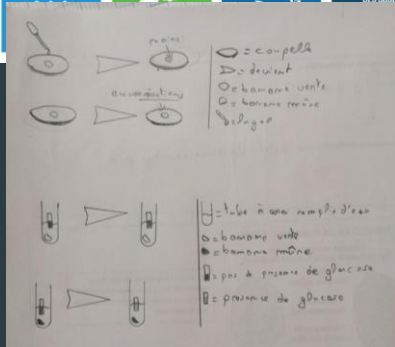 noirci
= coupelle
= devient
aucune réaction
= banane verte
= banane mûre
= lugol
= tube à essai remplie d'eau
= banane verte
= banane mûre
= pas de présence de glucose
= présence de glucose